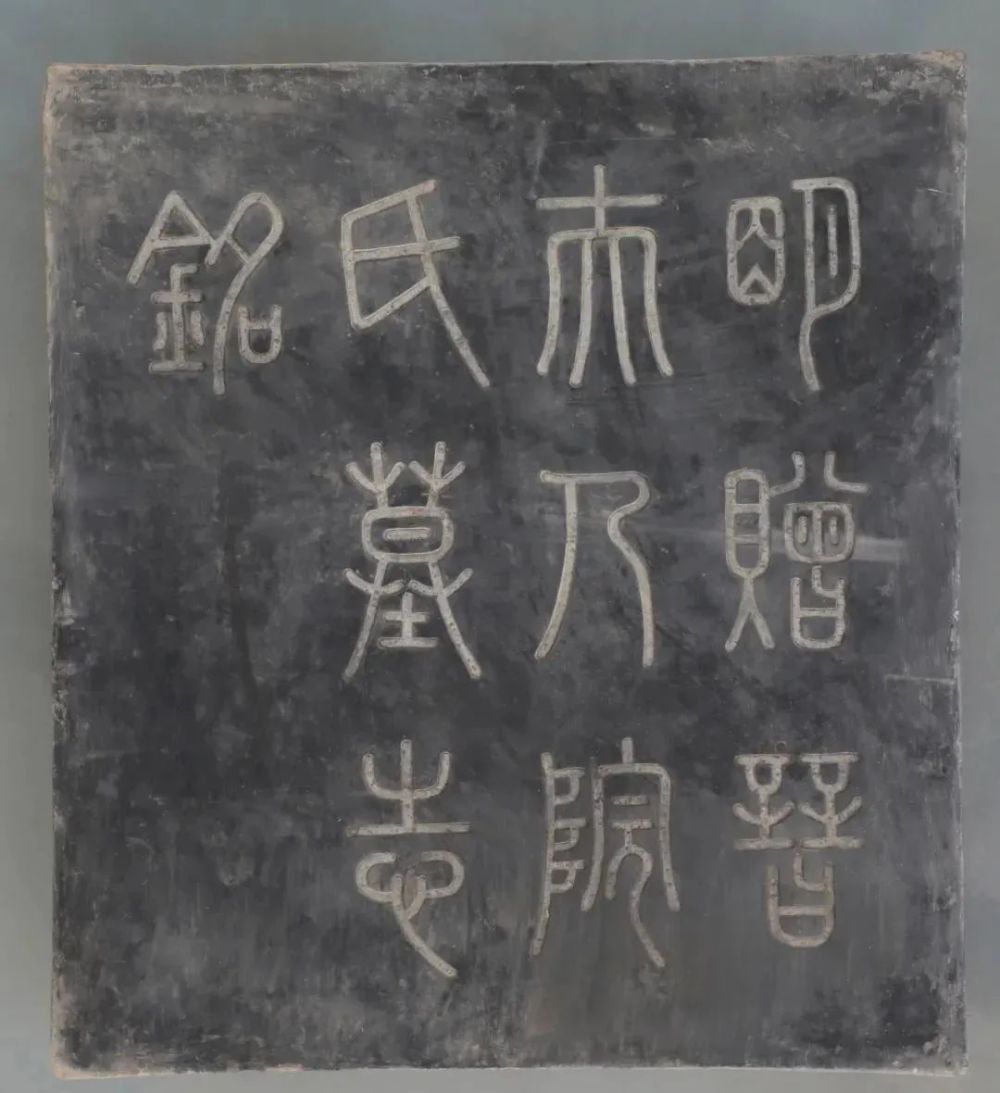 明贈晉
夫人院
氏墓志
銘